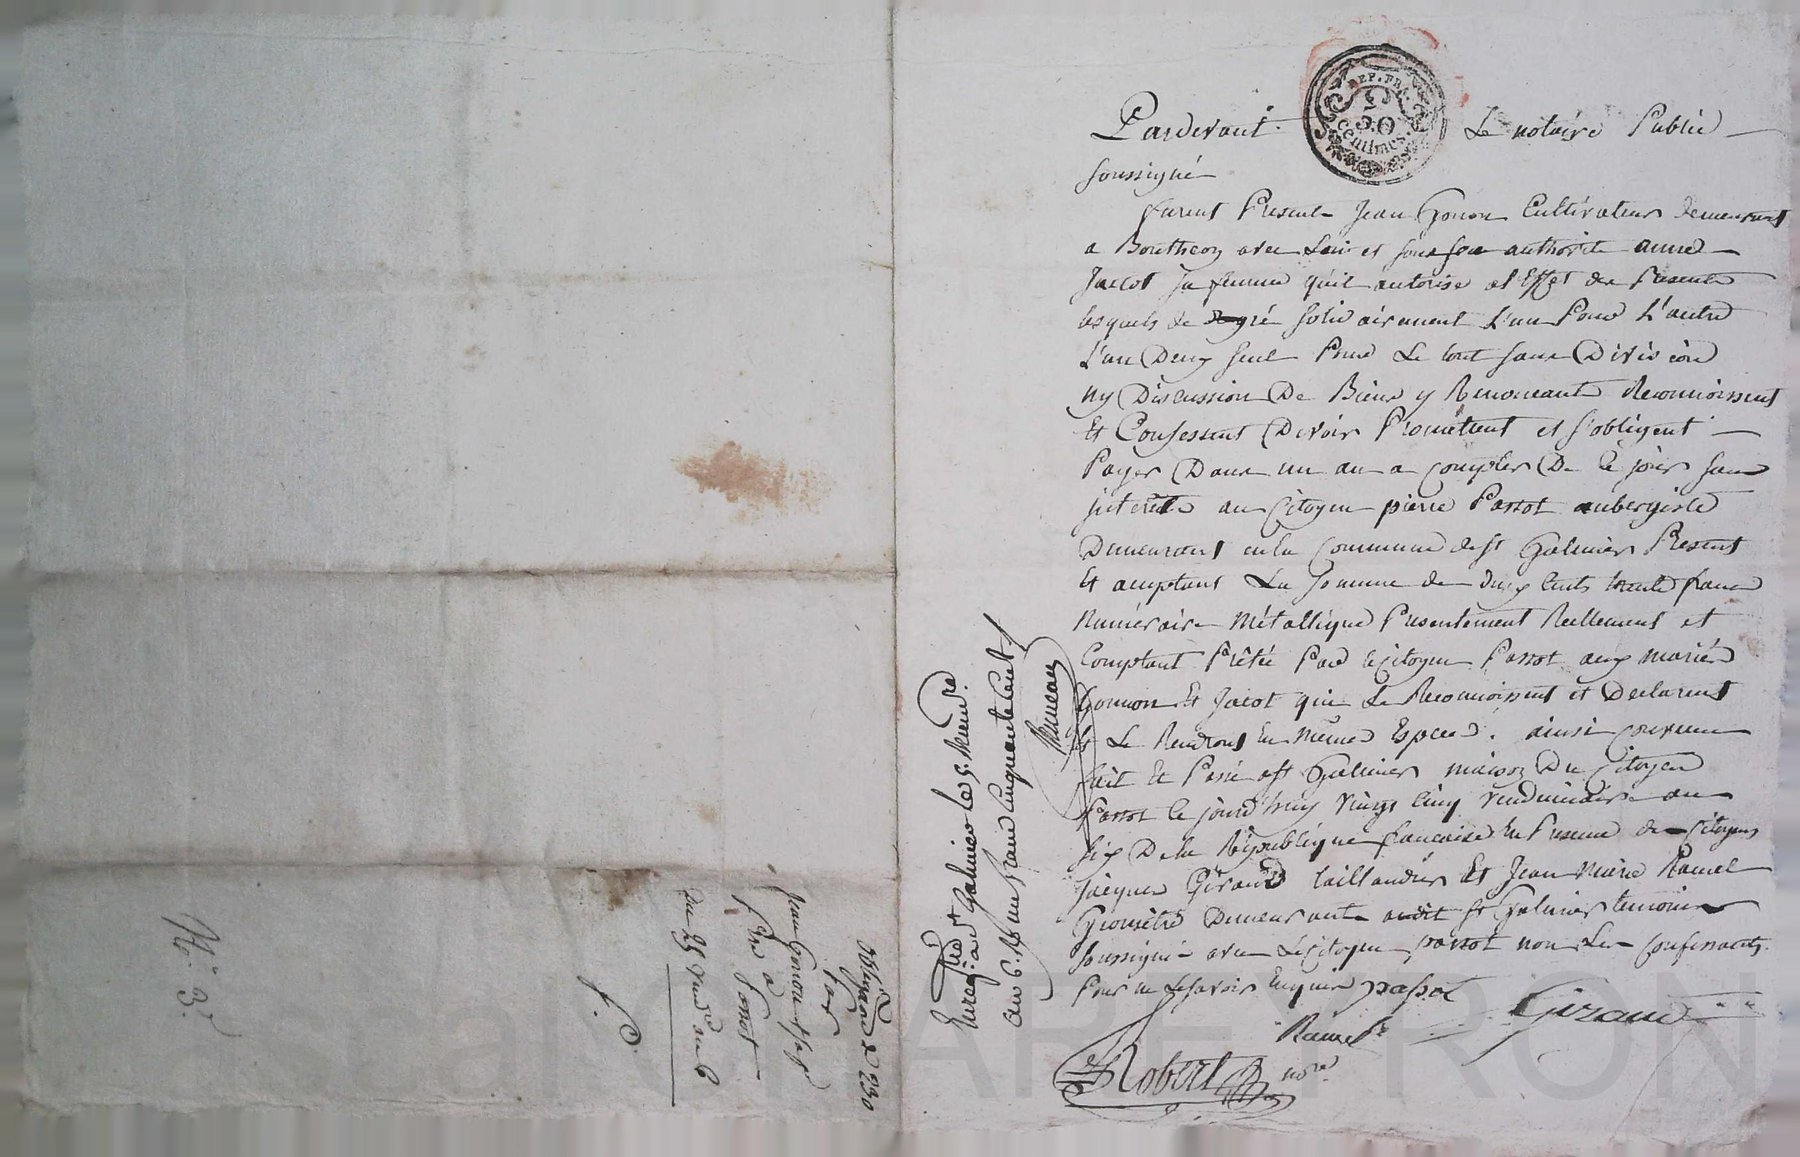 Pardevant Le notaire Public
REP. FRA.
50
centimes.
soussigné
furent Present Jean Gonon Cultivateur demeurant
a Boutheon avec Lui et sous son authorité anne
Jacot sa femme quil autorise a l'Effet des Presente
lesquels de gré solidairement L'un Pour L'autre
L'un Deux seul Pour Le tout sans Division
ny Discussion De Biens y Renonceant Reconnoissent
Et Confessent Devoir Promettent et s'obligent
Payer Dans un an a compter De ce jour sans
interêts au Citoyen pierre Passot aubergiste
Demeurant en la Commune de st Galmier Present
Et acceptant La somme de deux Cents trente franc
Numéraire Métallique Presentement Reellement et
Comptant Prêtée Par le Citoyen Passot aux mariés
Gonon Et Jacot qui Le Reconnoissent et Declarent
Et Le Rendront En même Espece. ainsi convenu
fait Et Passé a st Galmier maison Du Citoyen
Passot ce jourd'huy vingt Cinq vendemiaire an
six De la République francaise En Presence des Citoyens
jacques Giraud taillandier Et Jean Marie Ramel
Géometre Demeurant audit st Galmier temoins
soussigné avec Le Citoyen passot non Les Confessants
Pour ne Le savoir Enquis passot
Giraud
Ramel
Robert nore
Enregistré a st Galmier le 5. Brum.re
an 6. R un franc cinquante cent
obligaon de 230
par
Jean Gonon et sa fe
a
Passot
du 25 Vend.re an 6
No. 3.